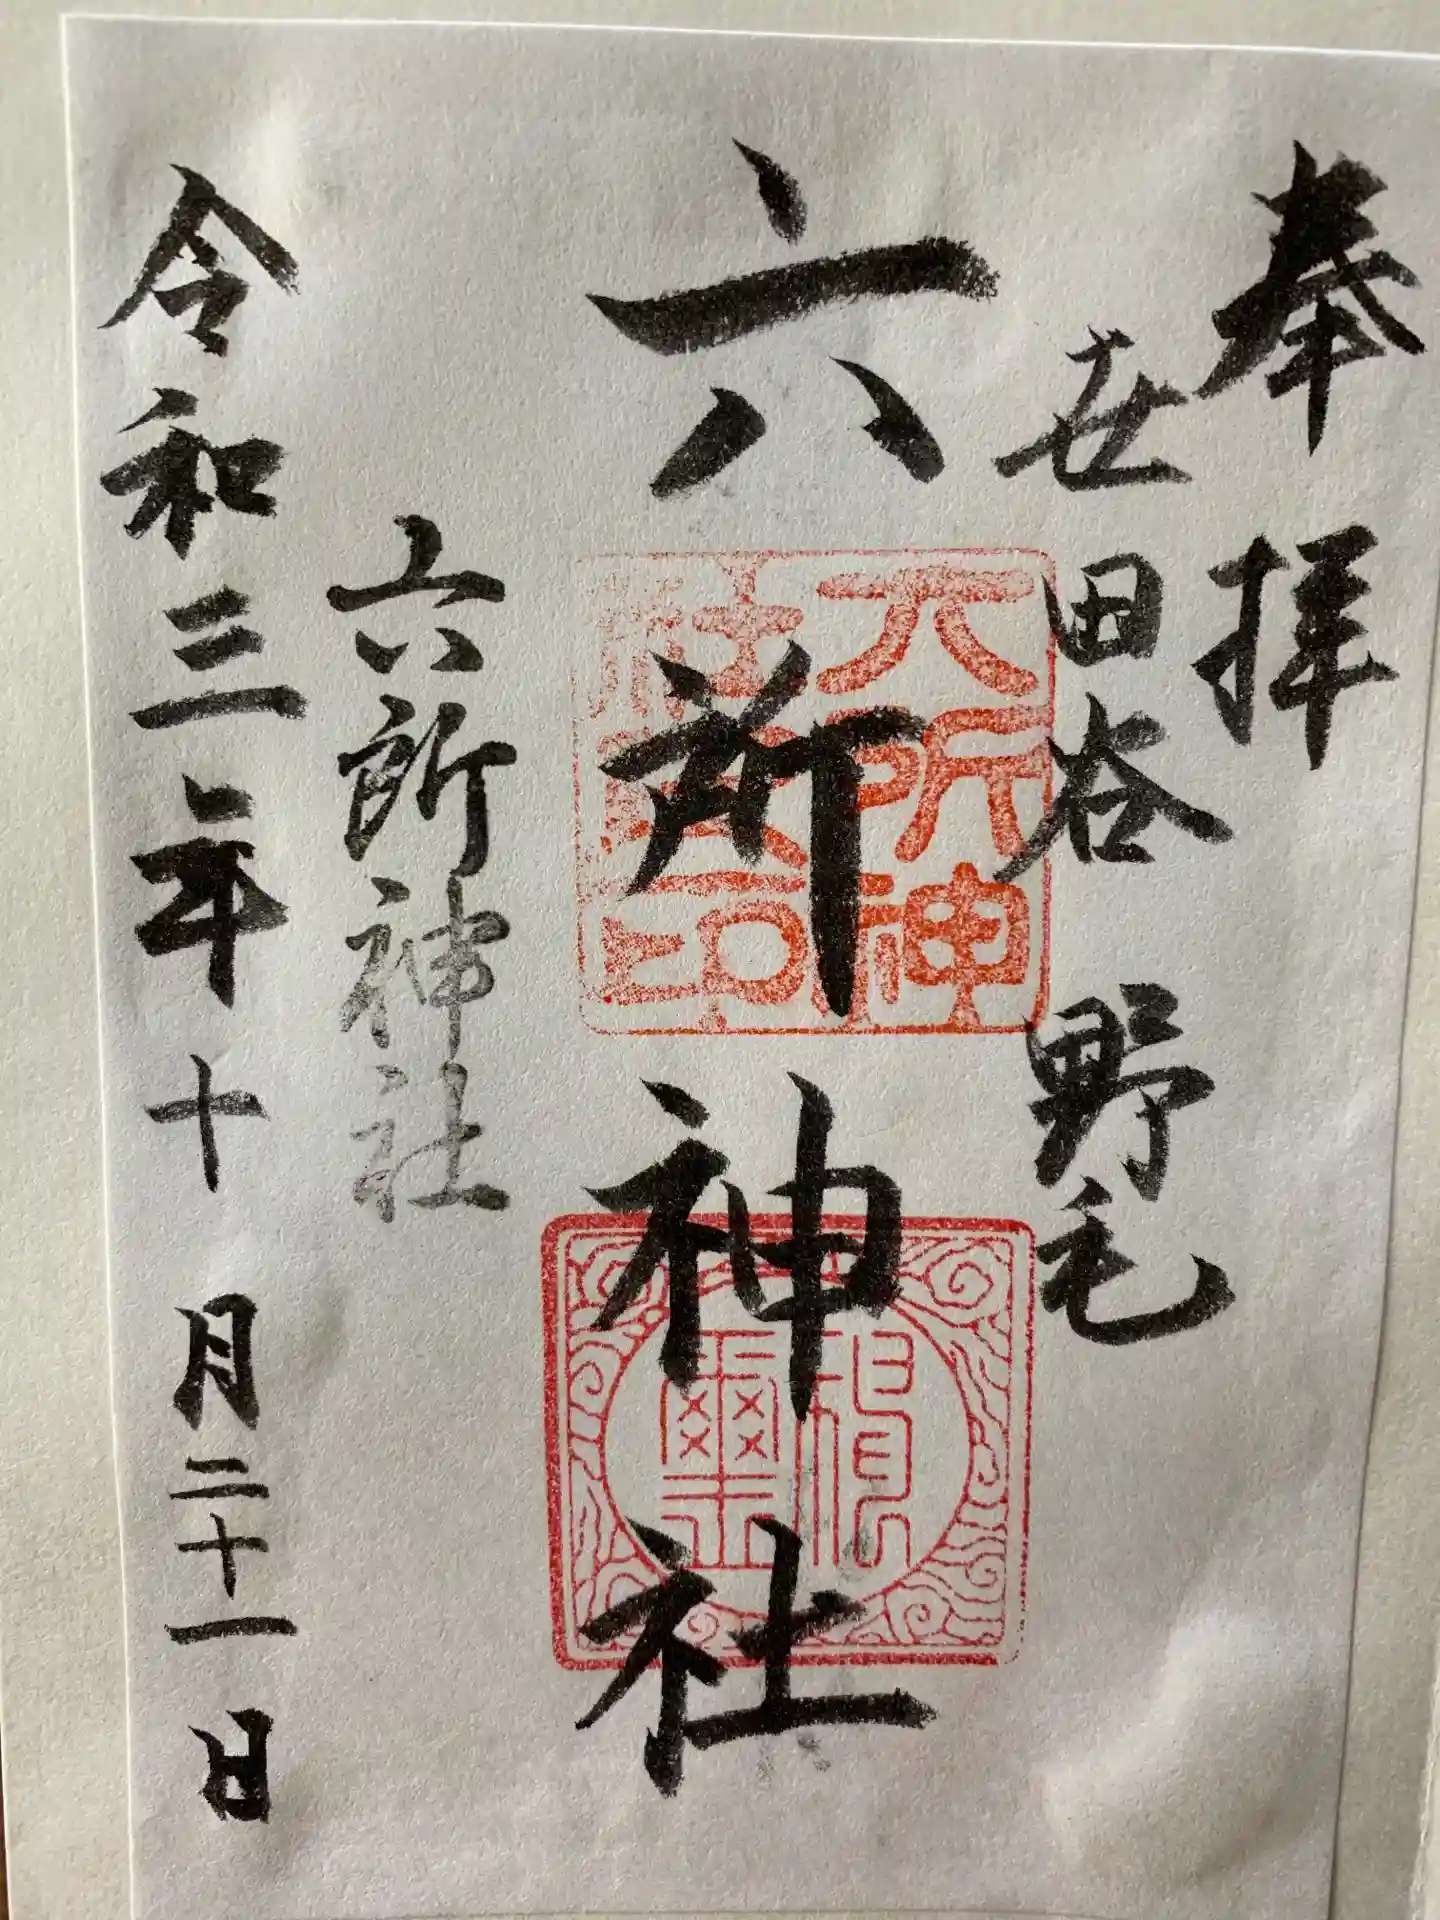 奉拝
世田谷 野毛
六所神社
六所神社
令和三年十月二十一日
六所神
社
印